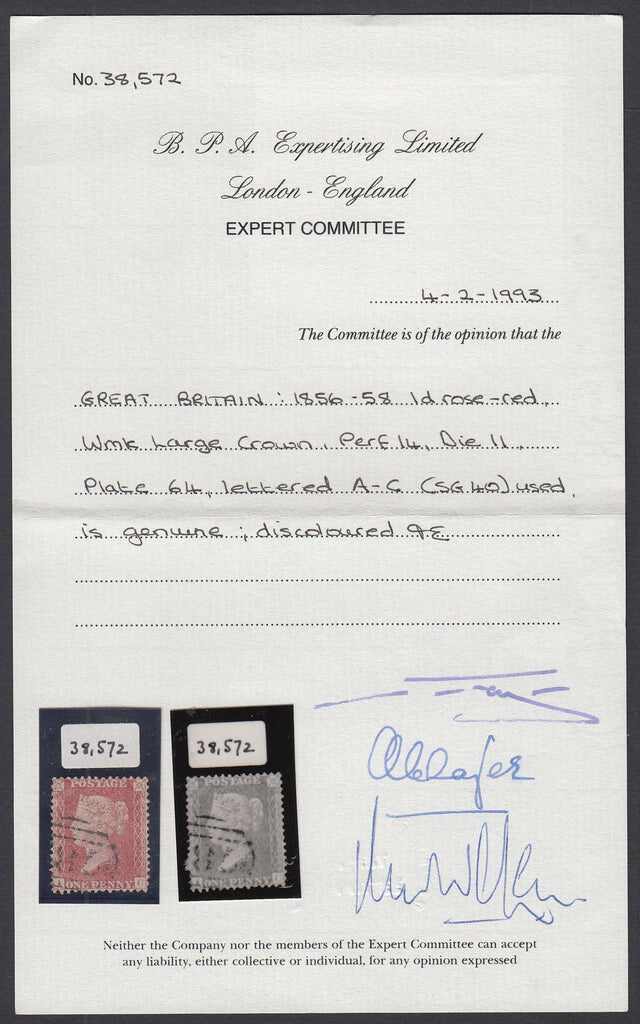 No. 38,572
B. P. A. Expertising Limited
London - England
EXPERT COMMITTEE
4-2-1993
The Committee is of the opinion that the
GREAT BRITAIN : 1856-58 1d rose-red,
Wmk Large Crown, Perf 14, Die 11,
Plate 64, lettered A-C (SG 40) used,
is genuine ; discoloured
38,572
38,572
POSTAGE
POSTAGE
A ONE PENNY C
A ONE PENNY C
Neither the Company nor the members of the Expert Committee can accept
any liability, either collective or individual, for any opinion expressed